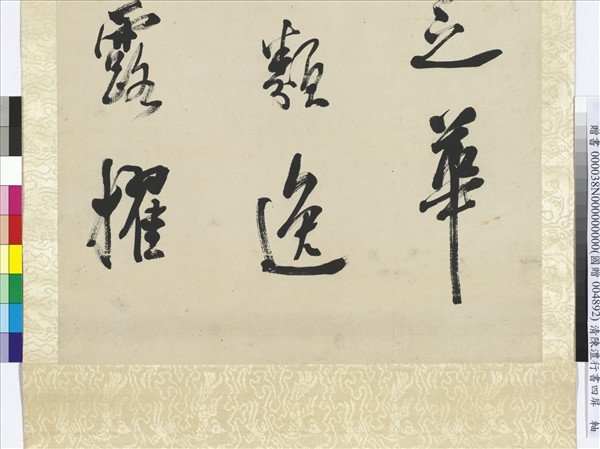 之華
類逸
露擢
贈書 000038N000000000(國贈 004892) 清陳澧行書四屏 軸